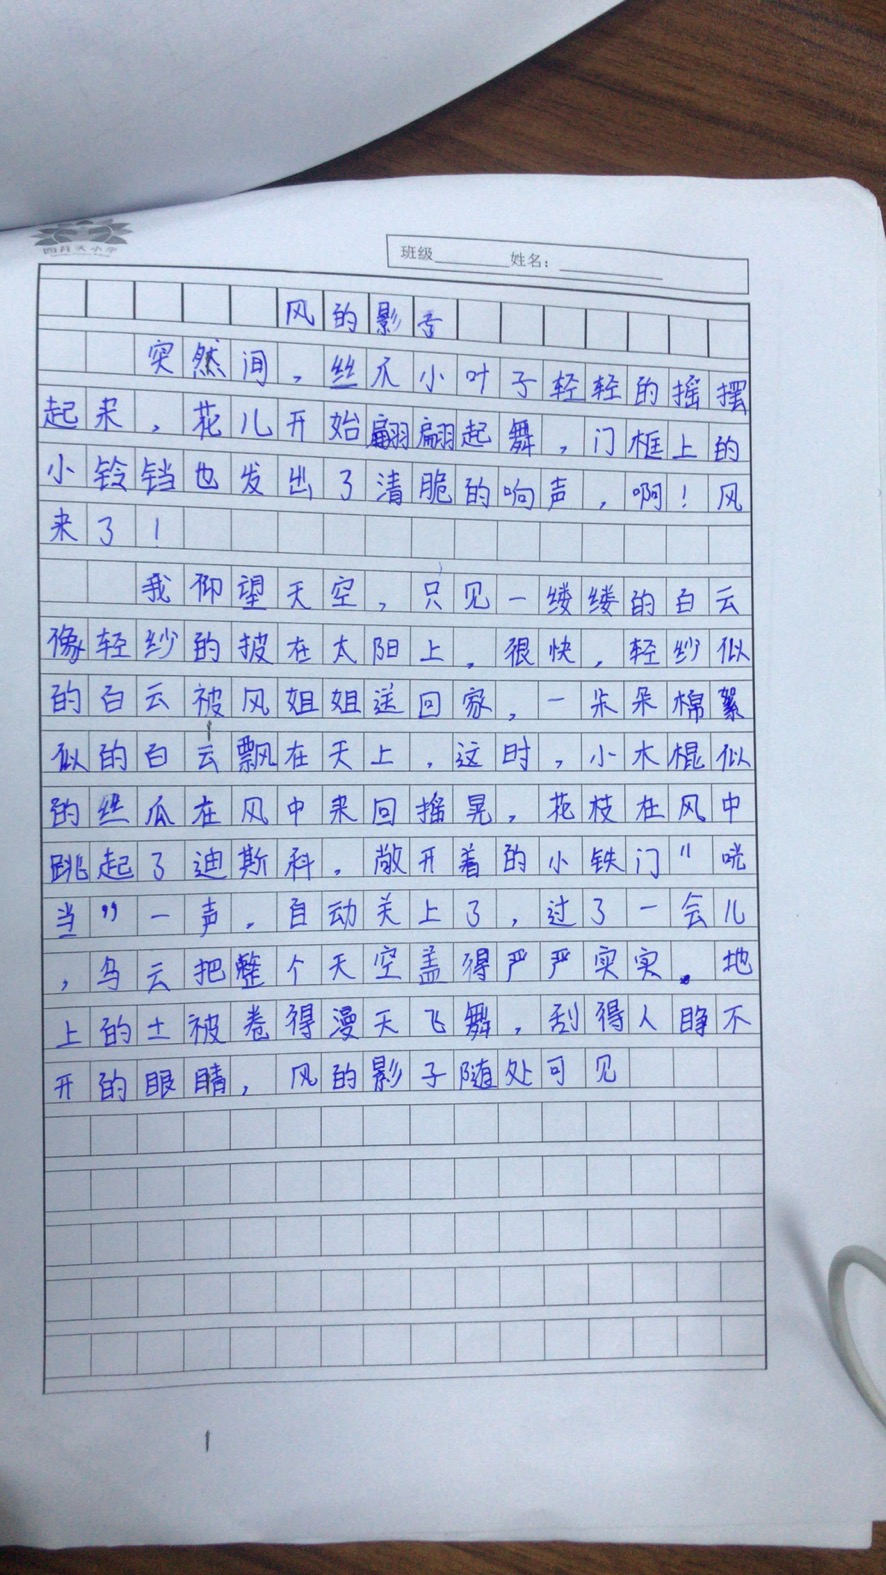 四月天小学
班级________姓名：__________
风的影子
突然间，丝爪小叶子轻轻的摇摆
起来，花儿开始翩翩起舞，门框上的
小铃铛也发出了清脆的响声，啊！风
来了！
我仰望天空，只见一缕缕的白云
像轻纱的披在太阳上，很快，轻纱似
的白云被风姐姐送回家，一朵朵棉絮
似的白云飘在天上，这时，小木棍似
的丝瓜在风中来回摇晃，花枝在风中
跳起了迪斯科，敞开着的小铁门"咣
当"一声，自动关上了，过了一会儿
，乌云把整个天空盖得严严实实。地
上的土被卷得漫天飞舞，刮得人睁不
开的眼睛，风的影子随处可见